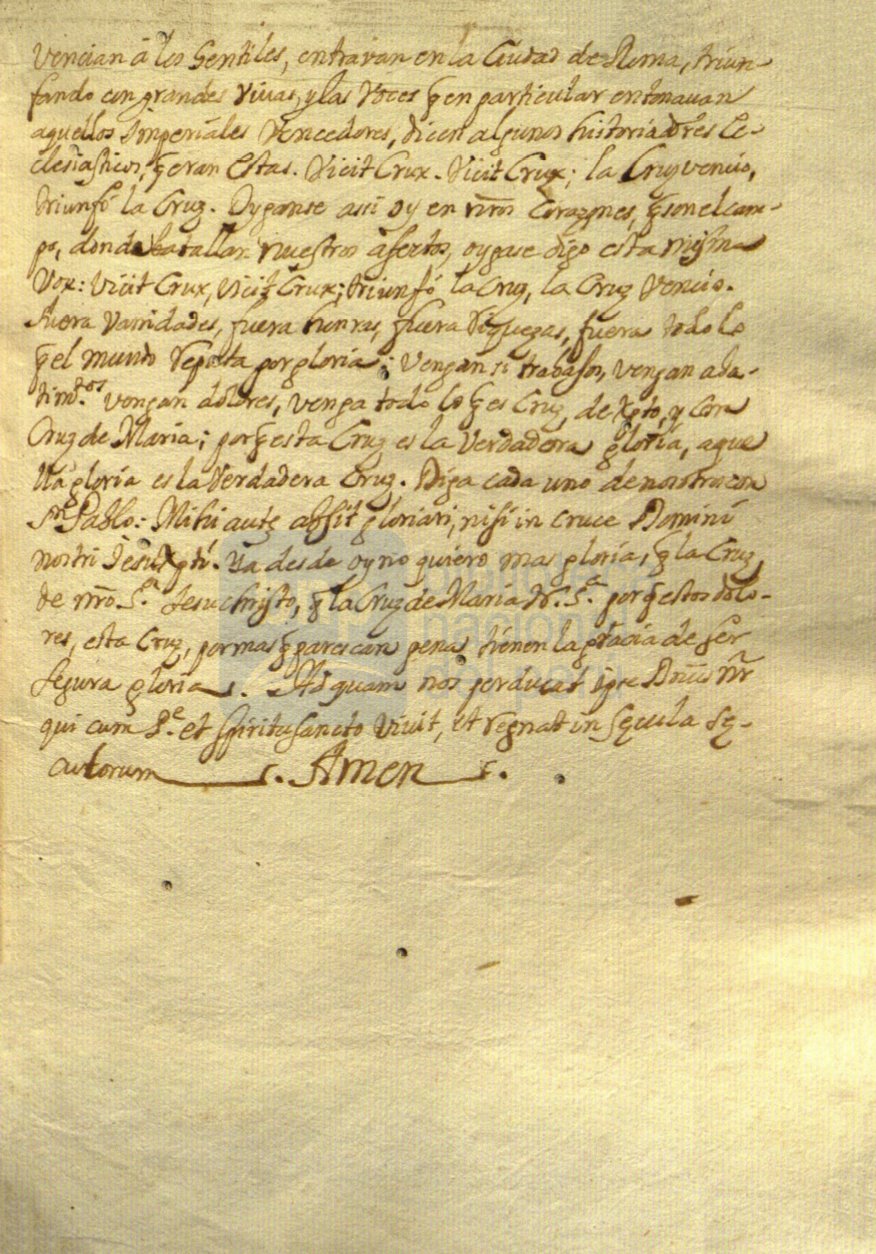 vencian â los Gentiles, entravan en la Ciudad de Roma, triun-
fando con grandes vivas, y las voces q̃ en particular entonavan
aquellos Imperiales Vencedores, dicen algunos historiadores Ec-
clesiasticos, q̃ eran estas. Vicit Crux. Vicit Crux; la Cruz vencio,
triunfô la Cruz. Oyganse assi oy en nr̃os Corazones, q̃ son el cam-
po, donde batallan nuestros afectos, oygase digo esta misma
Vox: Vicit Crux, vicit Crux; triunfó la Cruz, la Cruz Vencio.
fuera Vanidades, fuera honras, fuera Riquezas, fuera todo lo
q̃ el mundo Reputa por gloria; Vengan si trabajos, vengan aba-
tim.tos vengan dolores, venga todo lo q̃ es Cruz, de Xpto, y con
Cruz de Maria; porq̃ esta Cruz es la Verdadera gloria, aque
lla gloria es la Verdadera Cruz. Diga cada uno de nosotros con
Sn Pablo: Mihi autẽ absit gloriari, nisi in cruce Domini
nostri Jesu Xpti. Ya desde oy no quiero mas gloria, q̃ la Cruz
de nr̃o S.r Jesu christo, q̃ la Cruz de Maria Nr̃. S.a porq̃ estos dolo-
res, esta Cruz, por mas q̃ parescan penas, tienen la gracia de ser
segura gloria. Ad quam nos perducat ipse Dnũs nr̃
qui cum P.e et Spiritu sancto Vivit, et regnat in sęcula sę-
culorum. Amen.
biblioteca
nacional
del perú